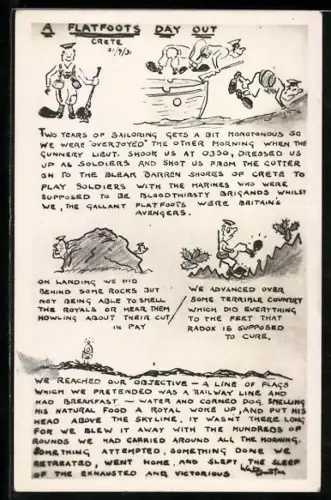 A FLATFOOTS DAY OUT
CRETE
21/9/31
TWO YEARS OF SAILORING GETS A BIT MONOTONOUS SO
WE WERE "OVERJOYED" THE OTHER MORNING WHEN THE
GUNNERY LIEUT. SHOOK US AT 0530, DRESSED US
UP AS SOLDIERS AND SHOT US FROM THE CUTTER
ON TO THE BLEAK BARREN SHORES OF CRETE TO
PLAY SOLDIERS WITH THE MARINES WHO WERE
SUPPOSED TO BE BLOODTHIRSTY BRIGANDS WHILST
WE, THE GALLANT FLATFOOTS WERE BRITAIN'S
AVENGERS.
ON LANDING WE HID
BEHIND SOME ROCKS BUT
NOT BEING ABLE TO SMELL
THE ROYALS OR HEAR THEM
HOWLING ABOUT THEIR CUT
IN PAY
WE ADVANCED OVER
SOME TERRIBLE COUNTRY
WHICH DID EVERYTHING
TO THE FEET THAT
RADOX IS SUPPOSED
TO CURE.
WE REACHED OUR OBJECTIVE - A LINE OF FLAGS
WHICH WE PRETENDED WAS A RAILWAY LINE AND
HAD BREAKFAST - WATER AND CORNED DOG. SMELLING
HIS NATURAL FOOD A ROYAL WOKE UP, AND PUT HIS
HEAD ABOVE THE SKYLINE. IT WASN'T THERE LONG
FOR WE BLEW IT AWAY WITH THE HUNDREDS OF
ROUNDS WE HAD CARRIED AROUND ALL THE MORNING.
SOMETHING ATTEMPTED, SOMETHING DONE WE
RETREATED, WENT HOME, AND SLEPT THE SLEEP
OF THE EXHAUSTED AND VICTORIOUS